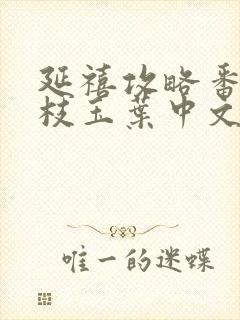 延禧攻略番
枝玉葉中文
唯一的迷蝶